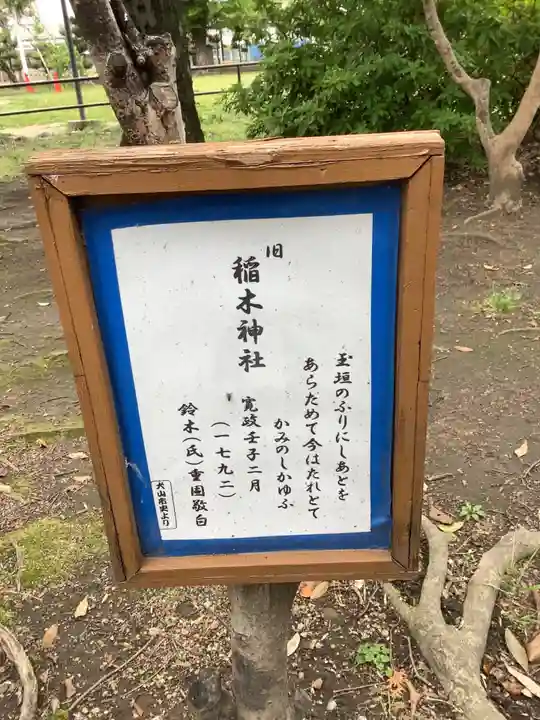 旧
稲木神社
玉垣のふりにしあとを
あらだめて今はたれとて
かみのしかゆふ
寛政壬子二月
(一七九二)
鈴木(氏)重固敬白
犬山市史より